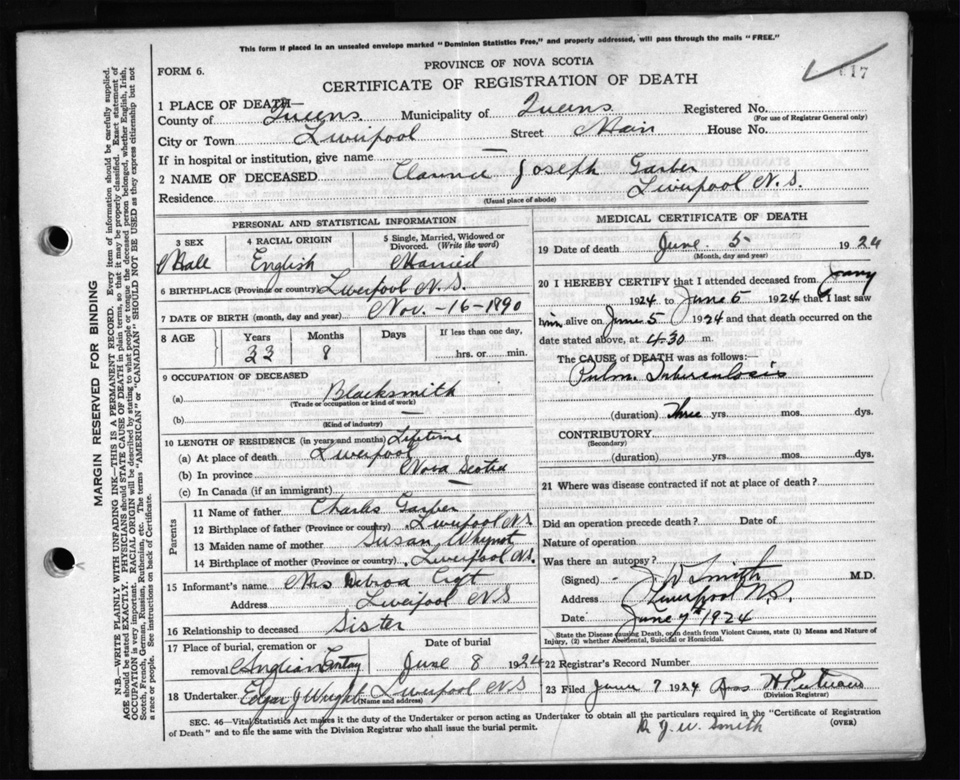 This form if placed in an unsealed envelope marked "Dominion Statistics Free," and properly addressed, will pass through the mails "FREE."
PROVINCE OF NOVA SCOTIA
17
FORM 6.
CERTIFICATE OF REGISTRATION OF DEATH
1 PLACE OF DEATH—
County of Queens Municipality of Queens Registered No.
(For use of Registrar General only)
City or Town Liverpool Street Main House No.
If in hospital or institution, give name —
2 NAME OF DECEASED Clarence Joseph Garber
Residence Liverpool N.S.
(Usual place of abode)
PERSONAL AND STATISTICAL INFORMATION
3 SEX 4 RACIAL ORIGIN 5 Single, Married, Widowed or Divorced. (Write the word)
Male English Married
6 BIRTHPLACE (Province or country) Liverpool N.S.
7 DATE OF BIRTH (month, day and year) Nov. -16-1890
8 AGE Years Months Days If less than one day,
33 8 hrs. or min.
9 OCCUPATION OF DECEASED
(a) Blacksmith
(Trade or occupation or kind of work)
(b) —
(Kind of industry)
10 LENGTH OF RESIDENCE (in years and months) Lifetime
(a) At place of death Liverpool
(b) In province Nova Scotia
(c) In Canada (if an immigrant) —
Parents
11 Name of father Charles Garber
12 Birthplace of father (Province or country) Liverpool N.S.
13 Maiden name of mother Susan Whynot
14 Birthplace of mother (Province or country) Liverpool N.S.
15 Informant's name Mrs
Address Liverpool N S
16 Relationship to deceased Sister
17 Place of burial, cremation or removal Date of burial
June 8 1924
18 Undertaker Edgar J Wright Liverpool N S
(Name and address)
MEDICAL CERTIFICATE OF DEATH
19 Date of death June 5 1924
(Month, day and year)
20 I HEREBY CERTIFY that I attended deceased from
1924 to June 5 1924 that I last saw
him alive on June 5 1924 and that death occurred on the
date stated above, at 4-30 m.
The CAUSE of DEATH was as follows:—
Pulm. Tuberculosis
(duration) Three yrs. mos. dys.
CONTRIBUTORY
(Secondary)
(duration) yrs. mos. dys.
21 Where was disease contracted if not at place of death?
Did an operation precede death? Date of
Nature of operation
Was there an autopsy?
(Signed) J W Smith M.D.
Address Liverpool N.S.
Date June 7th 1924
State the Disease causing Death, or in death from Violent Causes, state (1) Means and Nature of
Injury, (2) whether Accidental, Suicidal or Homicidal.
22 Registrar's Record Number
23 Filed June 7 1924
(Division Registrar)
SEC. 46—Vital Statistics Act makes it the duty of the Undertaker or person acting as Undertaker to obtain all the particulars required in the "Certificate of Registration
of Death" and to file the same with the Division Registrar who shall issue the burial permit. (OVER)
Dr J. W. Smith
MARGIN RESERVED FOR BINDING
N.B.—WRITE PLAINLY WITH UNFADING INK—THIS IS A PERMANENT RECORD. Every item of information should be carefully supplied.
AGE should be stated EXACTLY. PHYSICIANS should STATE CAUSE OF DEATH in plain terms, so that it may be properly classified. Exact statement of
OCCUPATION is very important. RACIAL ORIGIN will be described by stating to what people or tongue the deceased person belonged, whether English, Irish,
Scotch, French, German, Russian, Ruthenian, etc. The terms "AMERICAN" or "CANADIAN" SHOULD NOT BE USED as they express citizenship but not
a race or people. See instructions on back of Certificate.